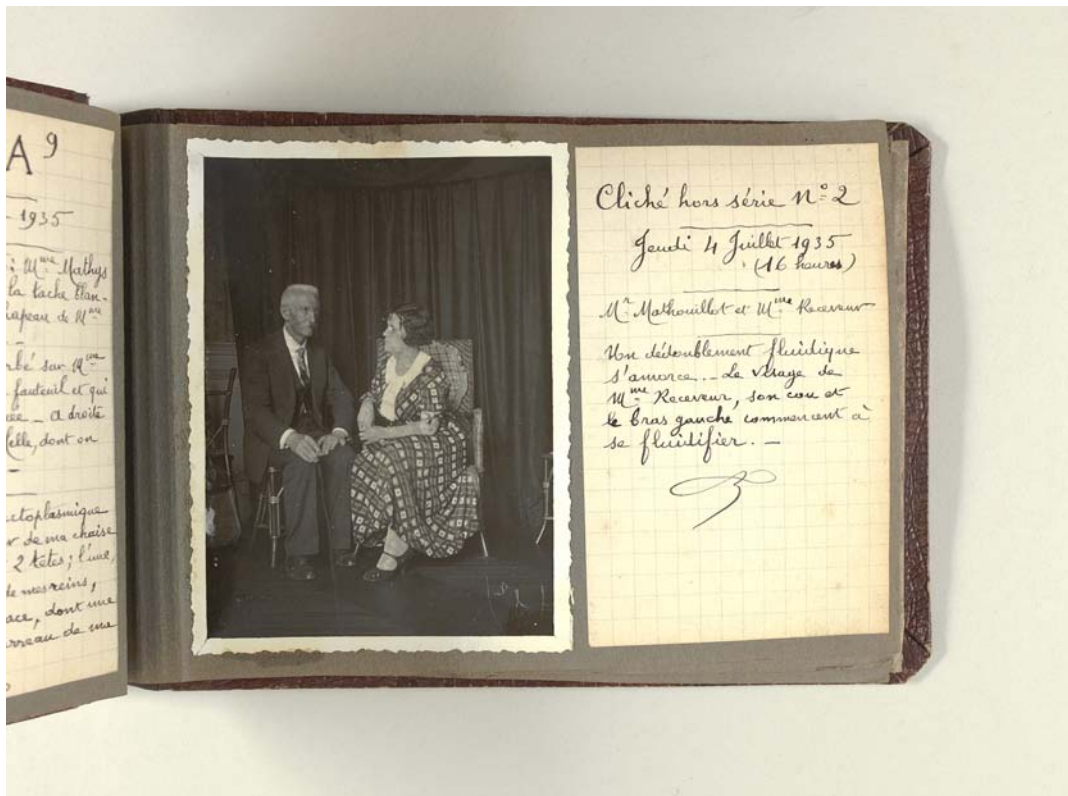 A⁹
- 1935
: Mᵐᵉ Mathys
la tache blan-
chapeau de Mᵐᵉ
—
bé sur Mᵐᵉ
fauteuil et qui
ée _ a droite
elle, dont on
—
ectoplasmique
de ma chaise
2 têtes ; l'une,
de mes reins,
ace, dont une
de une
Cliché hors série N° 2
Jeudi 4 Juillet 1935
(16 heures)
Mʳ Mathouillot et Mᵐᵉ Receveur
Un dédoublement fluidique
s'amorce. _ Le visage de
Mᵐᵉ Receveur, son cou et
le bras gauche commencent à
se fluidifier. _